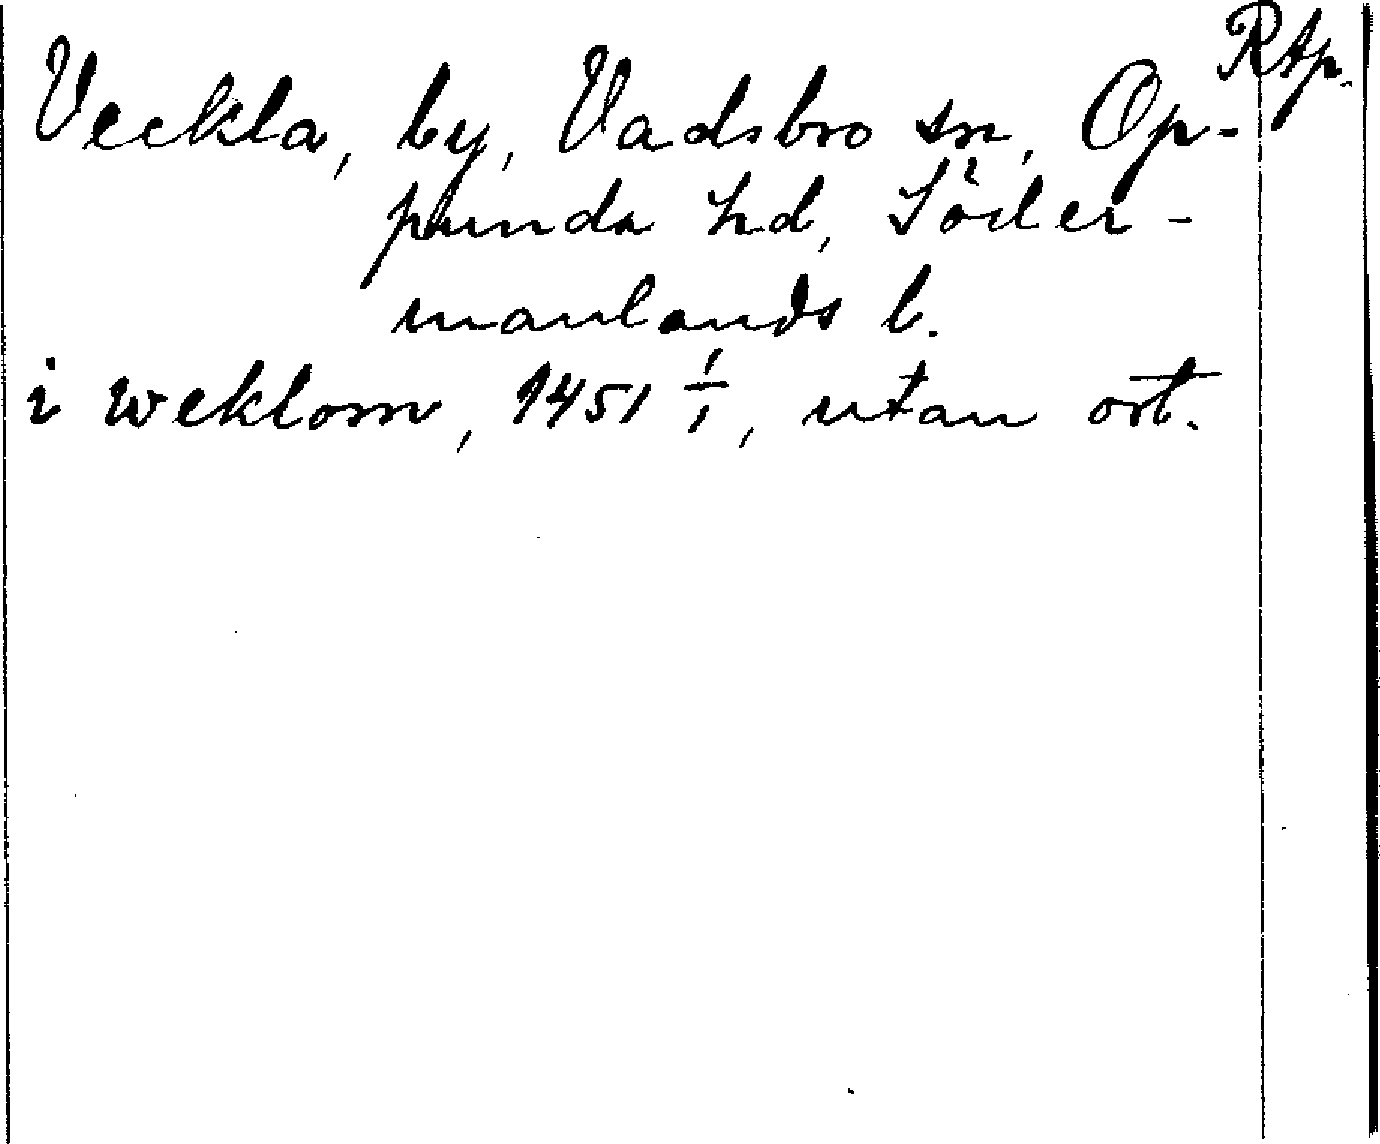 Rtp.
Veckla, by, Vadsbro sn, Op-
punda hd, Söder-
manlands l.
i weklom, 1451 1/1, utan ort.